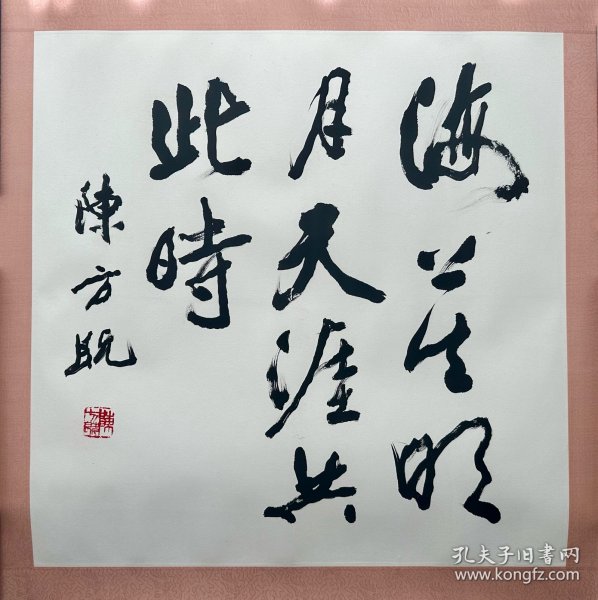 海上生明
月天涯共
此時
陳方既
孔夫子旧書网
www.kongfz.com